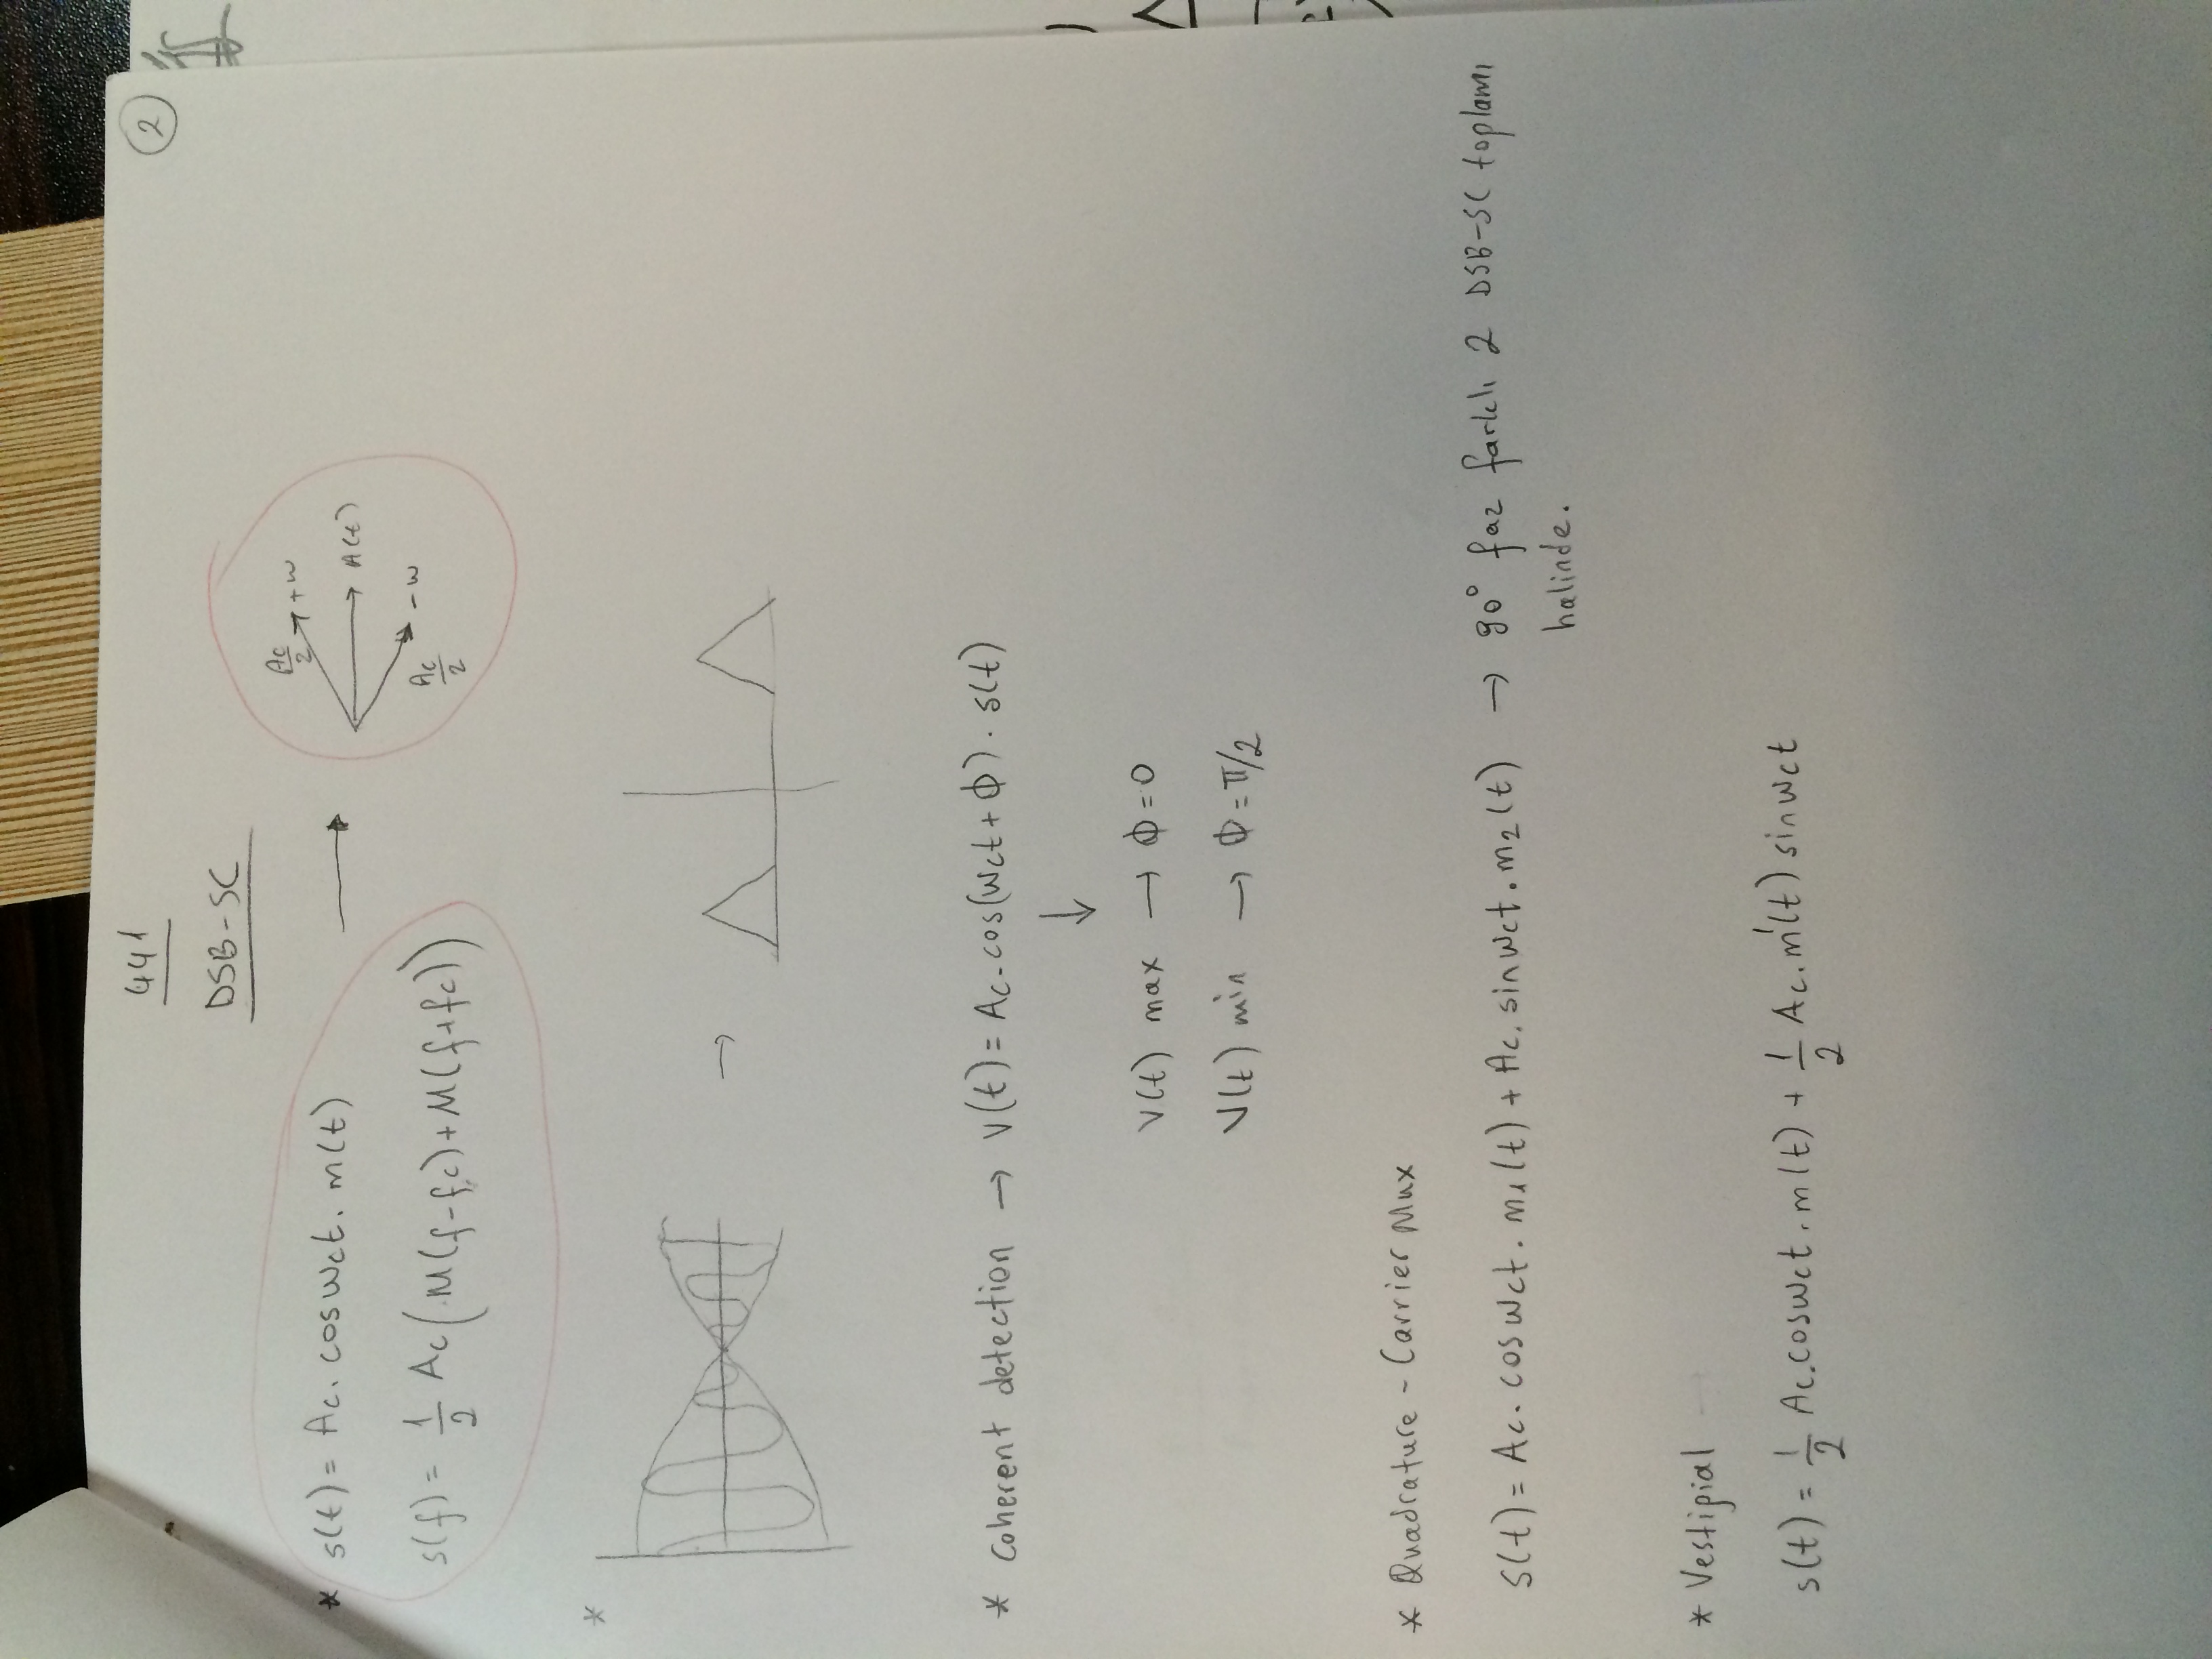 441
2
DSB-SC
* s(t) = Ac. coswct. m(t) → Ac/2 +w
A(t)
Ac/2 -w
s(f) = 1/2 Ac (M(f-fc)+M(f+fc))
*
→
* Coherent detection → v(t) = Ac.cos(wct + ϕ) . s(t)
↓
V(t) max → ϕ = 0
V(t) min → ϕ = π/2
* Quadrature - Carrier Mux
s(t) = Ac. coswct. m1(t) + Ac. sinwct. m2(t) → 90° faz farklı 2 DSB-SC toplamı
halinde.
* Vestigial
s(t) = 1/2 Ac.coswct.m(t) + 1/2 Ac.m'(t) sinwct